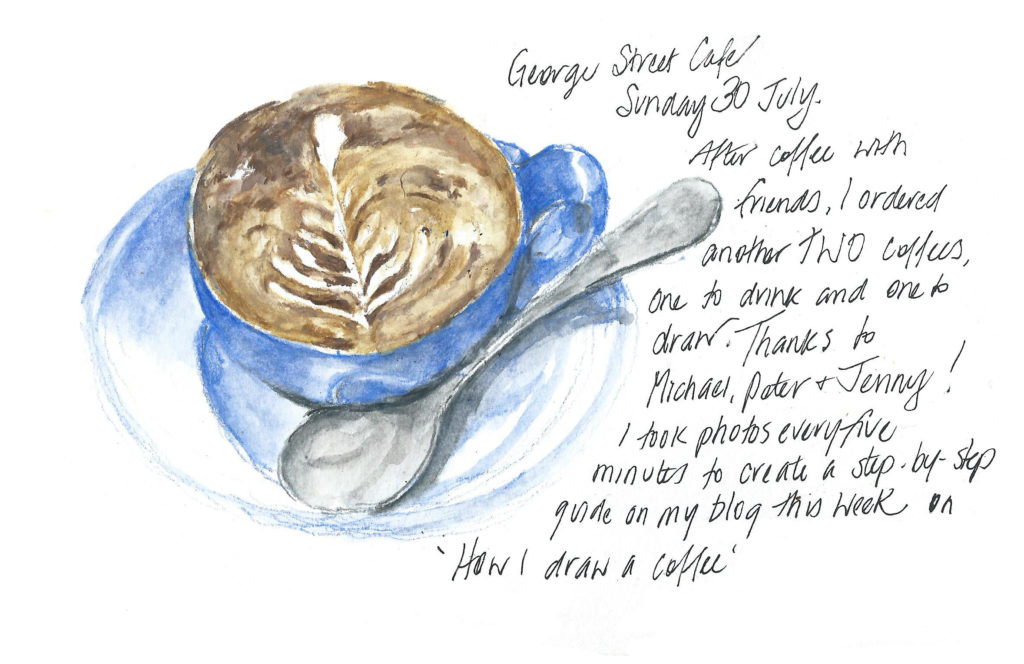 George Street Cafe
Sunday 30 July.
After coffee with
friends, I ordered
another TWO coffees,
one to drink and one to
draw. Thanks to
Michael, Peter + Jenny!
I took photos every five
minutes to create a step-by-step
guide on my blog this week on
'How I draw a coffee'